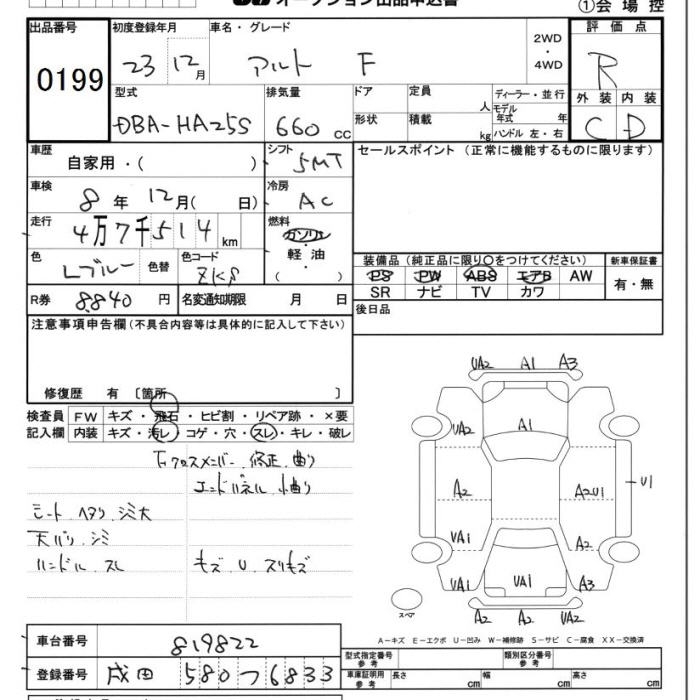 オークション出品申込書
①会場控
出品番号 初度登録年月 車名・グレード 2WD ・ 4WD 評価点
0199 23 12月 アルト F R
型式 排気量 ドア 定員 人 ディーラー・並行 モデル年式 年 外装 内装
DBA-HA25S 660cc 形状 積載 kg ハンドル 左・右 C D
車歴 自家用・( ) シフト 5MT セールスポイント (正常に機能するものに限ります)
車検 8年12月( 日) 冷房 AC
走行 4万7千514km 燃料 ガソリン ・ 軽油 ・ ( )
色 Lブルー 色替 色コード ZKS
装備品(純正品に限り○をつけてください) 新車保証書
PS PW ABS エアB AW 有・無
SR ナビ TV カワ
R券 8,840円 名変通知期限 月 日 後日品
注意事項申告欄(不具合内容等は具体的に記入して下さい)
修復歴 有 〔箇所 〕
検査員 FW キズ・飛石・ヒビ割・リペア跡・×要
記入欄 内装 キズ・汚レ・コゲ・穴・スレ・キレ・破レ
下クロスメンバー 修正 曲り
エンドパネル 小曲り
シート ヘタリ シミ大
天バリ シミ
ハンドル スレ キズ U スリキズ
UA2 A1 A3
UA2 A1
A2 A2U1 U1
UA1 A2
UA1 UA1 A3
A2 A2 UA2
スペア
A-キズ E-エクボ U-凹み W-補修跡 S-サビ C-腐食 XX-交換済
車台番号 819822
型式指定番号 参考 類別区分番号 参考
登録番号 成田 580 つ 6833
車庫証明用 参考 長さ cm 幅 cm 高さ cm